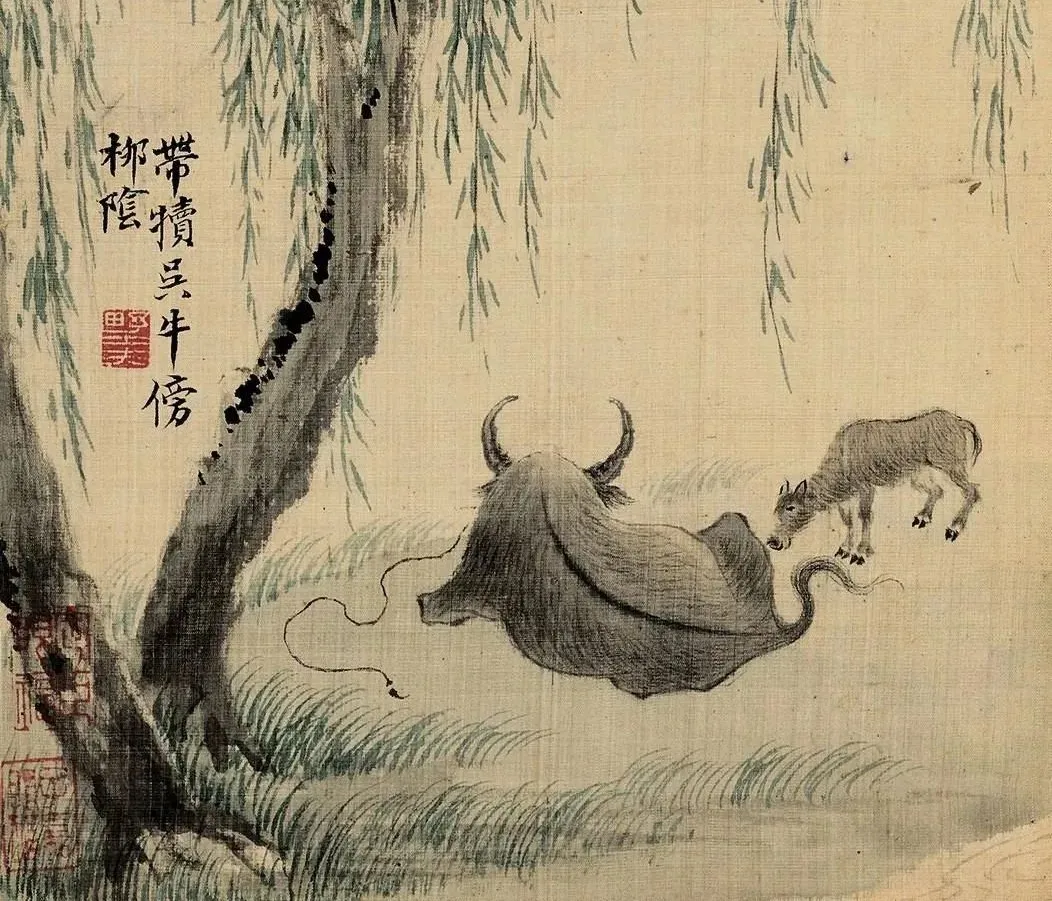 帶犢吳牛傍
柳陰